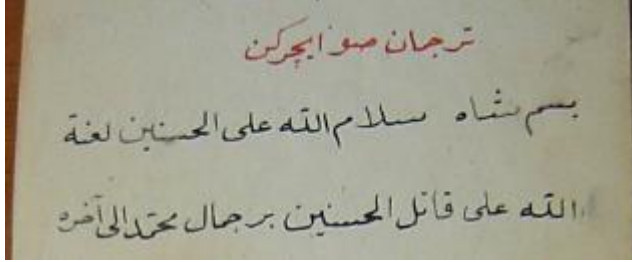 ترجمان صو ایچرکن
بسم شاه سلام الله علی الحسنین لغنة
الله علی قاتل الحسنین بر جمال محمد الی آخره